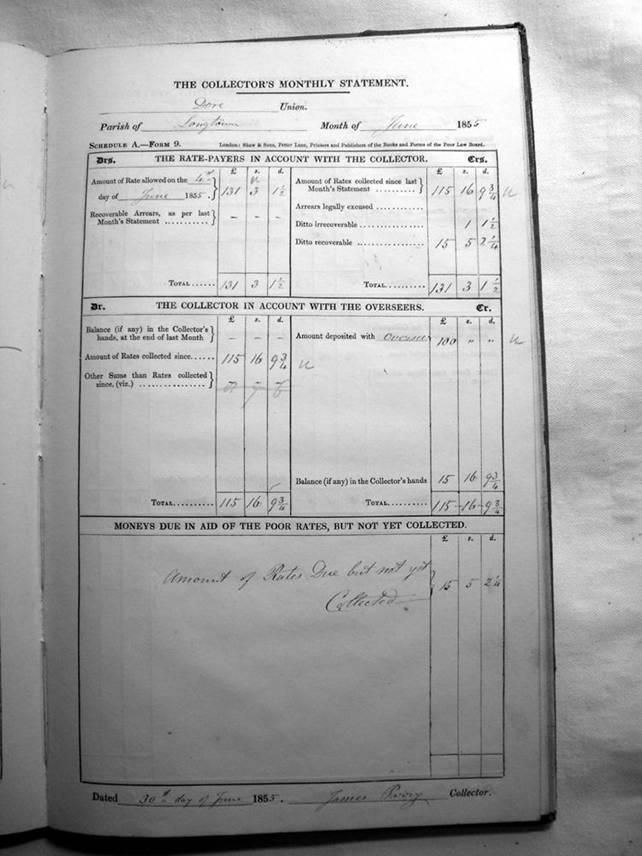 THE COLLECTOR'S MONTHLY STATEMENT.
Dore Union.
Parish of Longtown Month of June 1855
SCHEDULE A.—FORM 9. London: Shaw & Sons, Fetter Lane, Printers and Publishers of the Books and Forms of the Poor Law Board.
Drs. THE RATE-PAYERS IN ACCOUNT WITH THE COLLECTOR. Crs.
£ s. d. £ s. d.
Amount of Rate allowed on the 4th
day of June 1855 131 3 1½
Recoverable Arrears, as per last
Month's Statement - - -
Amount of Rates collected since last
Month's Statement 115 16 9¾
Arrears legally excused
Ditto irrecoverable 1 1½
Ditto recoverable 15 5 2¼
TOTAL 131 3 1½ TOTAL 131 3 1½
Dr. THE COLLECTOR IN ACCOUNT WITH THE OVERSEERS. Cr.
£ s. d. £ s. d.
Balance (if any) in the Collector's
hands, at the end of last Month - - -
Amount of Rates collected since 115 16 9¾
Other Sums than Rates collected
since, (viz.)
Amount deposited with Overseers 100 " "
Balance (if any) in the Collector's hands 15 16 9¾
TOTAL 115 16 9¾ TOTAL 115-16-9¾
MONEYS DUE IN AID OF THE POOR RATES, BUT NOT YET COLLECTED.
£ s. d.
Amount of Rates Due but not yet
Collected 15 5 2¼
Dated 30th day of June 1855. James Collector.